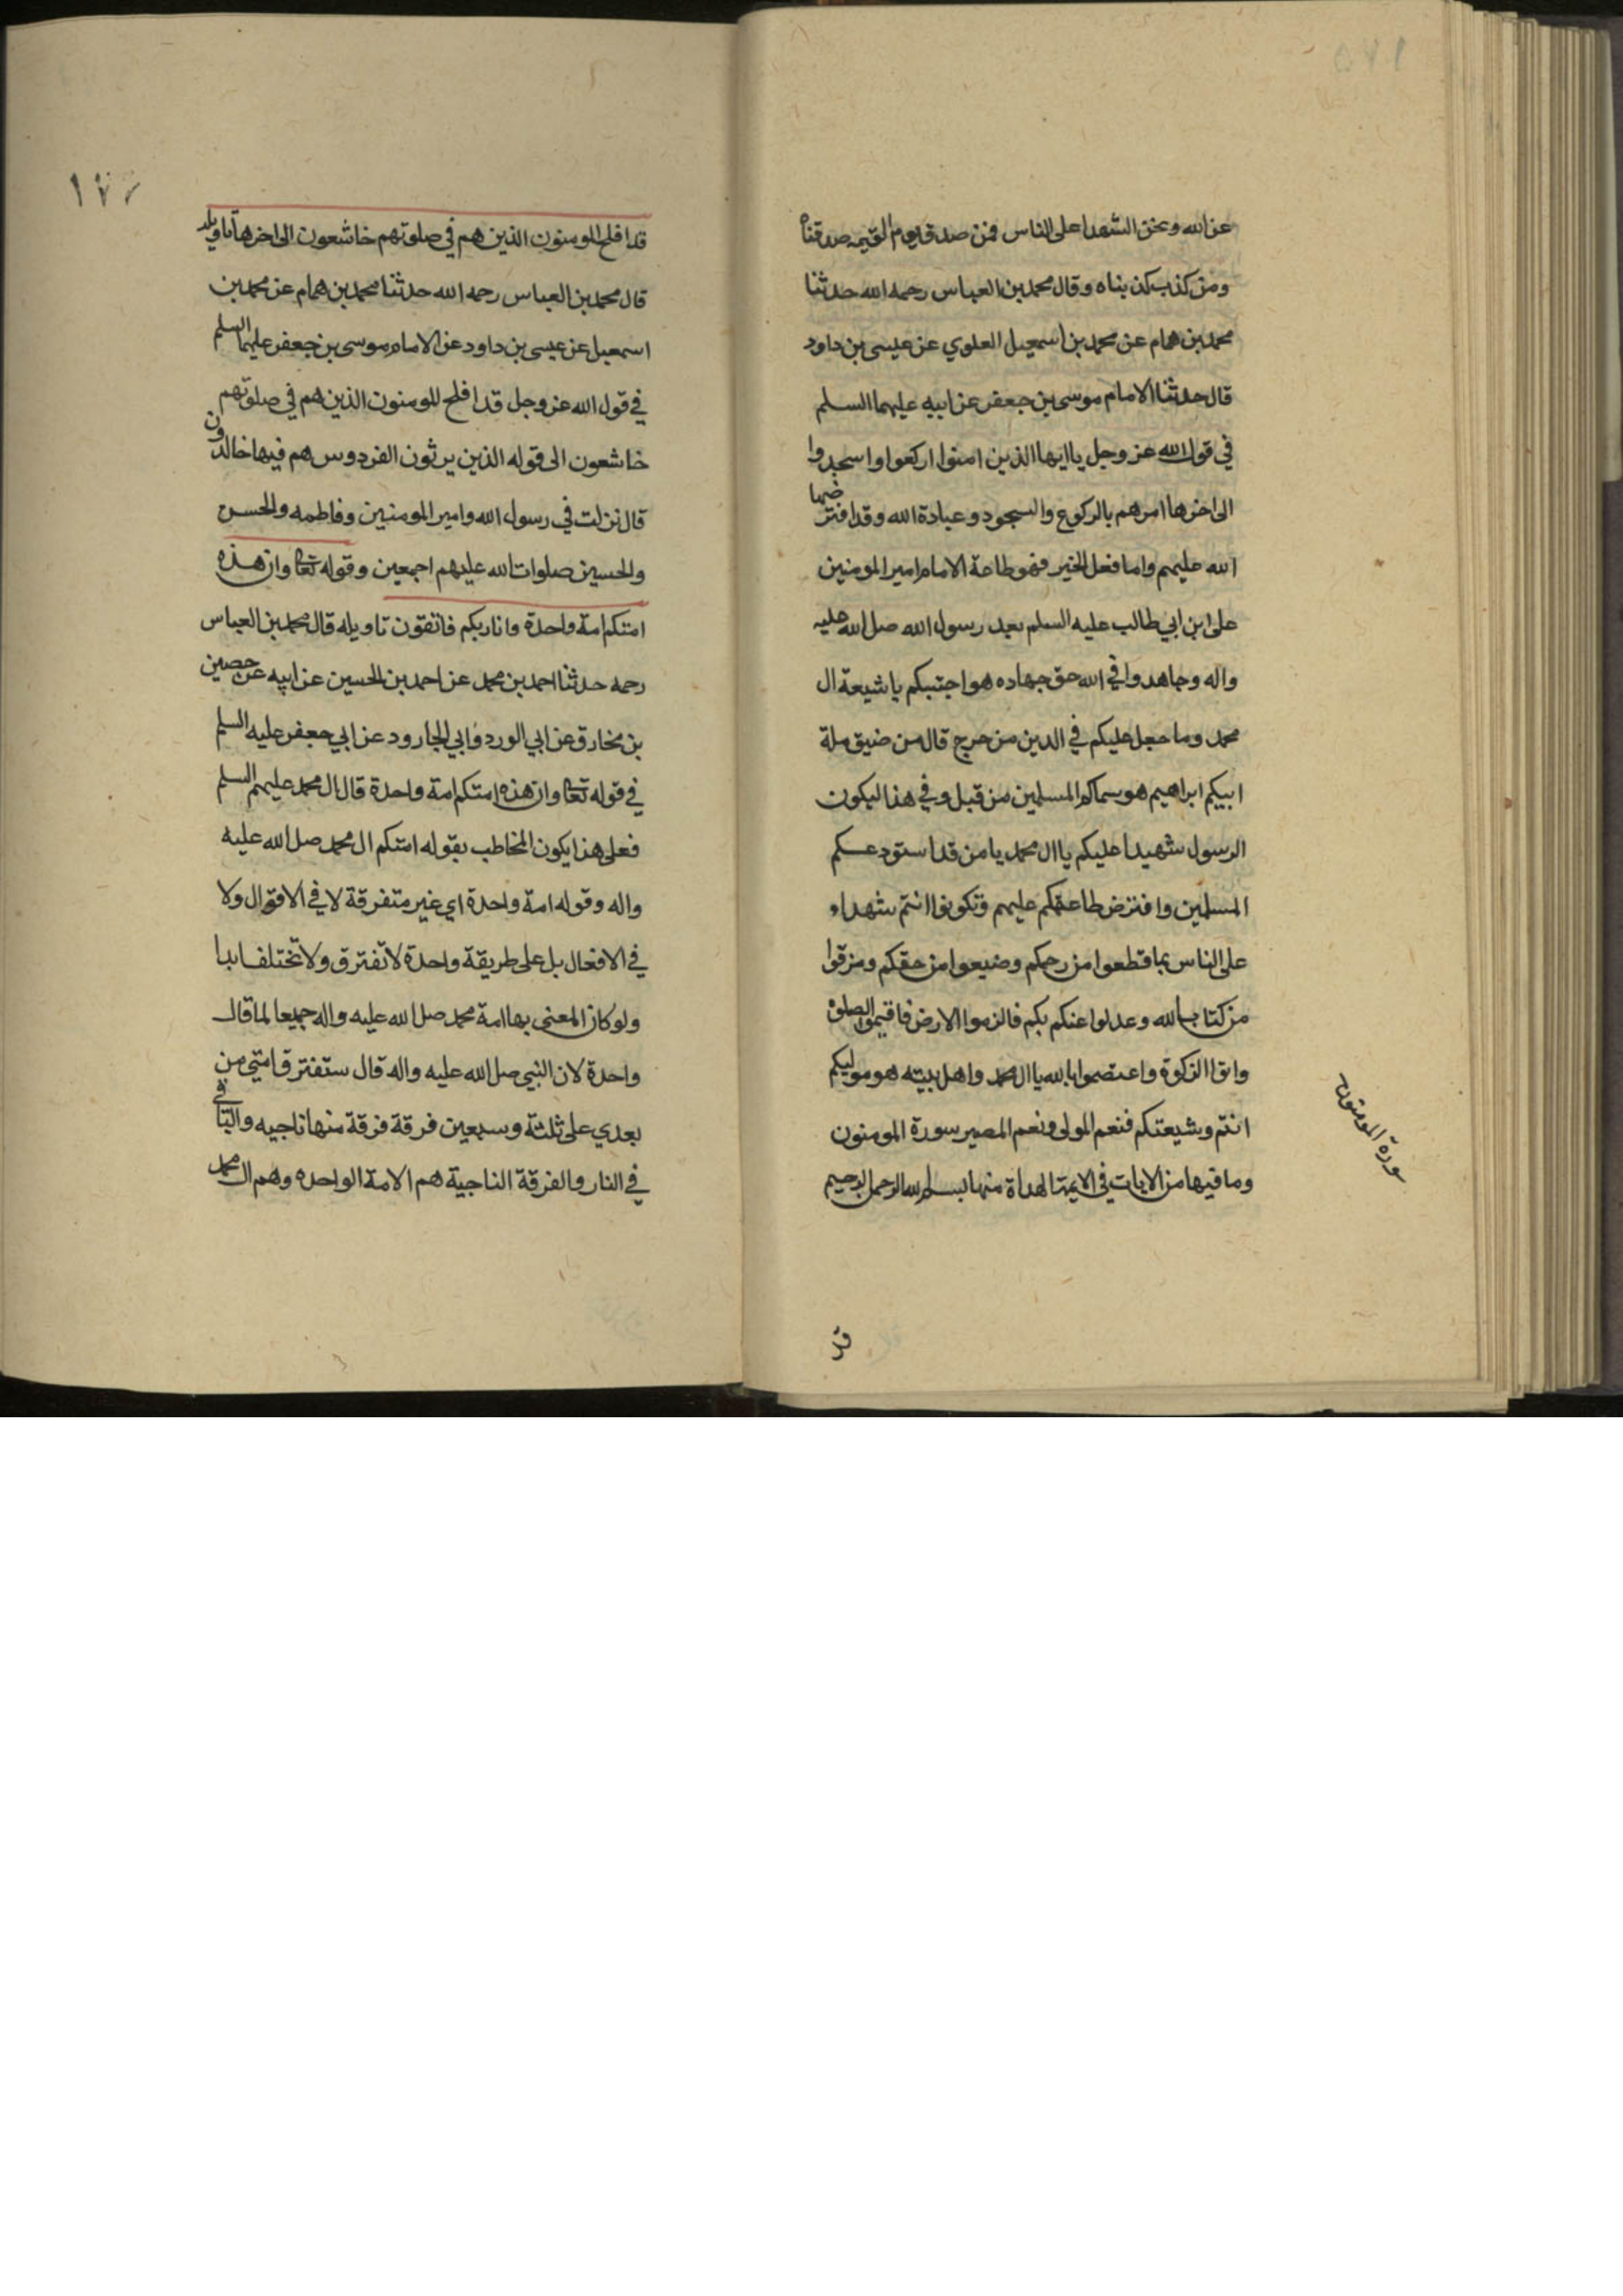 عن الله ونحن الشهدا على الناس فمن صدق يوم القيمه صدقناه
ومن كذب كذبناه وقال محمد بن العباس رحمه الله حدثنا
محمد بن همام عن محمد بن اسمعيل العلوي عن عيسى بن داود
قال حدثنا الامام موسى بن جعفر عن ابيه عليهما السلم
في قول الله عز وجل يا ايها الذين امنوا اركعوا واسجدوا
الى اخرها امرهم بالركوع والسجود وعبادة الله وقد افترضها
الله عليهم واما فعل الخير فهو طاعة الامام امير المومنين
على ابن ابي طالب عليه السلم بعد رسول الله صلى الله عليه
واله وجاهدوا في الله حق جهاده هو اجتبيكم يا شيعة ال
محمد وما جعل عليكم في الدين من حرج قال من ضيق ملة
ابيكم ابراهيم هو سماكم المسلمين من قبل وفي هذا ليكون
الرسول شهيدا عليكم يا ال محمد يا من قد استودعكم
المسلمين وافترض طاعتكم عليهم وتكونوا انتم شهداء
على الناس بما قطعوا من رحمكم وضيعوا من حقكم ومزقوا
من كتاب الله وعدلوا عنكم بكم فالزموا الارض فاقيموا الصلوة
واتوا الزكوة واعتصموا بالله يا ال محمد واهل بيته هو موليكم
انتم وشيعتكم فنعم المولى ونعم المصير سورة المومنون
وما فيها من الايات في الايمة الهداة منها بسم الله الرحمن الرحيم
سورة المومنون
قد
١٧٦
قد افلح المومنون الذين هم في صلوتهم خاشعون الى اخرها تاويله
قال محمد بن العباس رحمه الله حدثنا محمد بن همام عن محمد بن
اسمعيل عن عيسى بن داود عن الامام موسى بن جعفر عليهما السلم
في قول الله عز وجل قد افلح المومنون الذين هم في صلوتهم
خاشعون الى قوله الذين يرثون الفردوس هم فيها خالدون
قال نزلت في رسول الله وامير المومنين وفاطمه والحسن
والحسين صلوات الله عليهم اجمعين وقوله تعا وان هذه
امتكم امة واحدة وانا ربكم فاتقون تاويله قال محمد بن العباس
رحمه حدثنا احمد بن محمد عن احمد بن الحسين عن ابيه عن حصين
بن مخارق عن ابي الورد وابي الجارود عن ابي جعفر عليه السلم
في قوله تعا وان هذه امتكم امة واحدة قال ال محمد عليهم السلم
فعلى هذا يكون المخاطب بقوله امتكم ال محمد صلى الله عليه
واله وقوله امة واحدة اي غير متفرقة لا في الاقوال ولا
في الافعال بل على طريقة واحدة لا تفترق ولا تختلف ابدا
ولو كان المعنى بها امة محمد صلى الله عليه واله جميعا لما قال
واحدة لان النبي صلى الله عليه واله قال ستفترق امتي من
بعدي على ثلثة وسبعين فرقة فرقة منها ناجيه والباقي
في النار والفرقة الناجية هم الامة الواحده وهم ال محمد